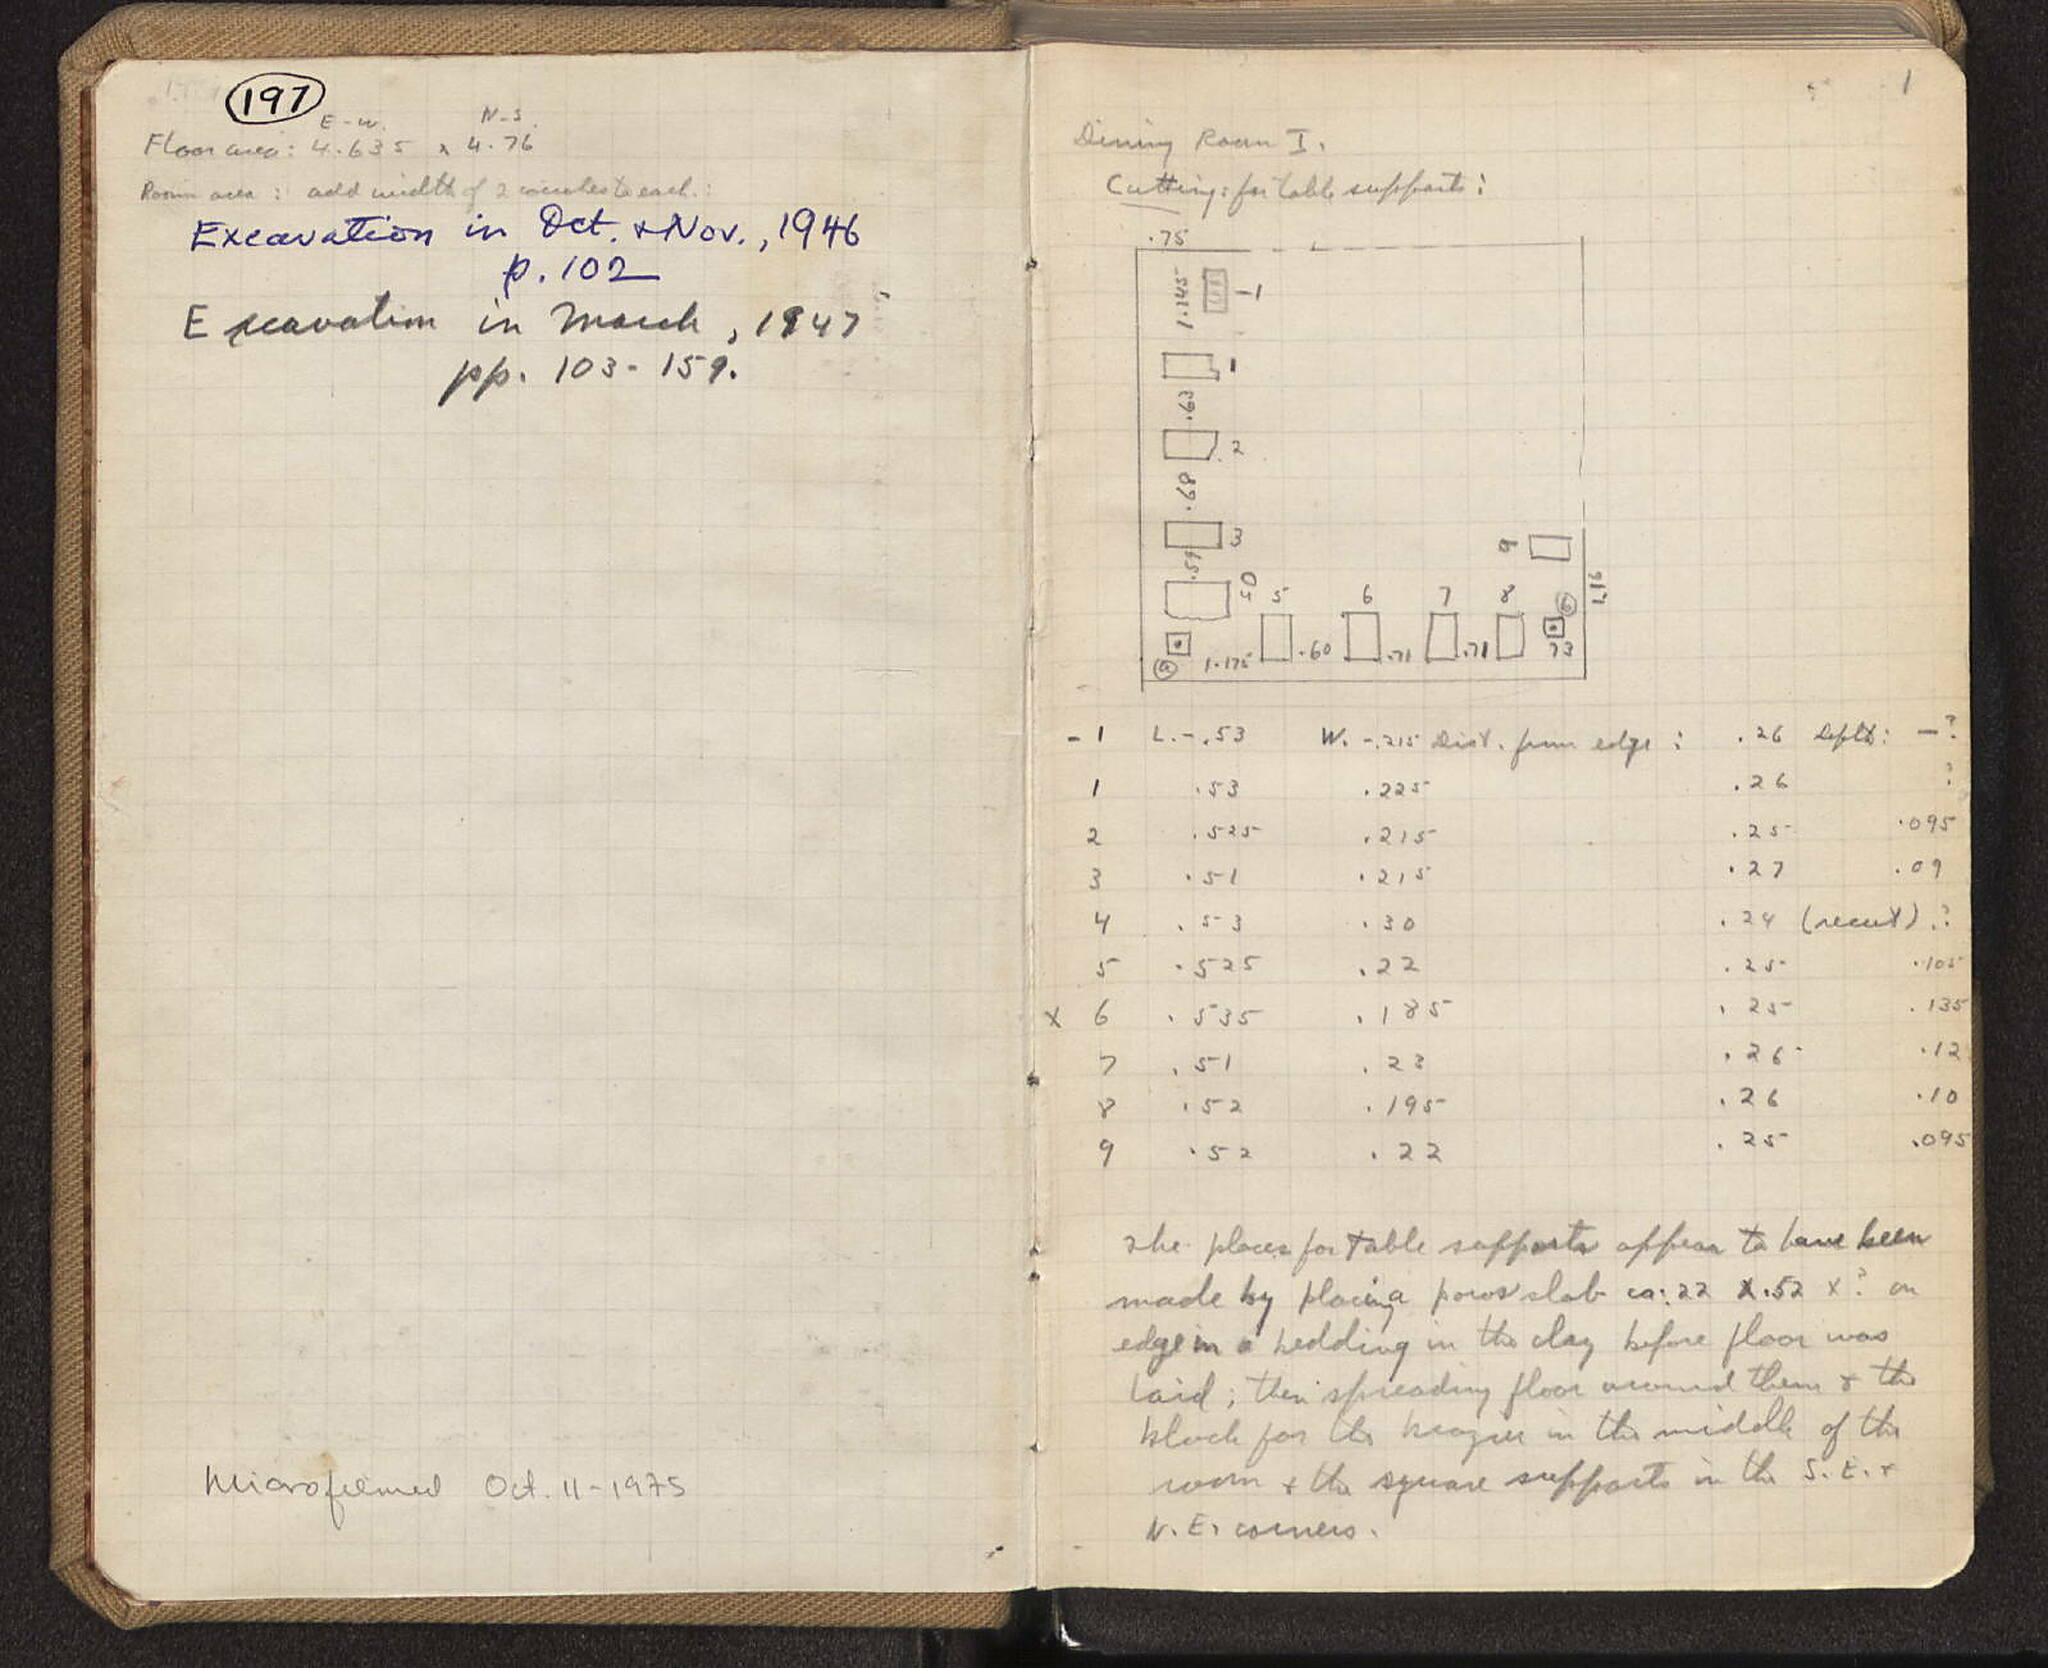 197
E-W. N-S.
Floor area: 4.635 x 4.76
Room area: add width of 2 couches to each:
Excavation in Oct. & Nov., 1946
p. 102
Excavation in March, 1947
pp. 103-159.
Microfilmed Oct. 11-1975
1
Dining Room I.
Cuttings for table supports:
.75
1.145
-1
1
.63
2
.68
3
.59
40
5 6 7 8 9
1.16
a 1.175 .60 .71 .71 73
-1 L.-.53 W.-.215 Dist. from edge: .26 Depth: -?
1 .53 .225 .26 ?
2 .525 .215 .25 .095
3 .51 .215 .27 .09
4 .53 .30 .24 (recut).?
5 .525 .22 .25 .105
x 6 .535 .185 .25 .135
7 .51 .23 .26 .12
8 .52 .195 .26 .10
9 .52 .22 .25 .095
The places for table supports appear to have been
made by placing a poros slab ca .22 x .52 x ? on
edge in a bedding in the clay before floor was
laid; then spreading floor around them & the
block for the brazier in the middle of the
room & the square supports in the S.E. &
N.E. corners.